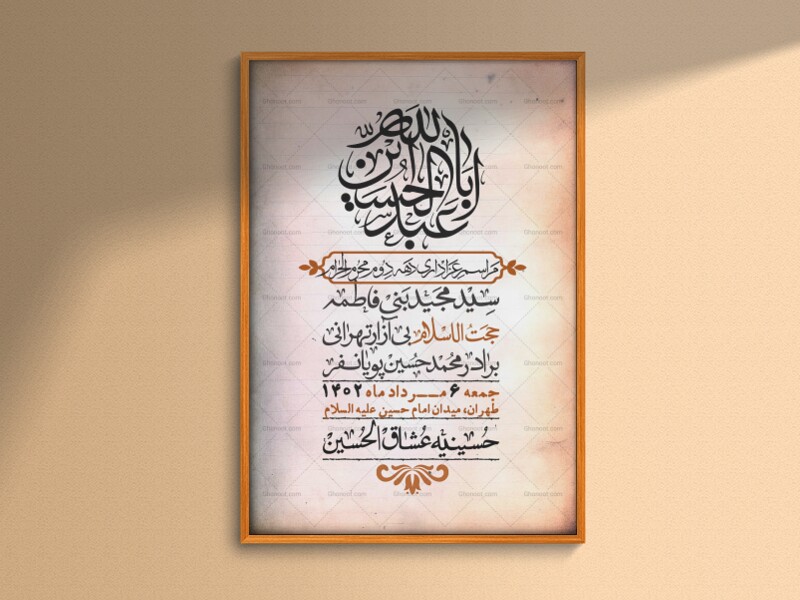 ابا عبدالله الحسین ابن
مراسم عزاداری دهه دوم محرم الحرام
سید مجید بنی فاطمه
حجت الاسلام بی آزار تهرانی
برادر محمد حسین پویانفر
جمعه ۶ مرداد ماه ۱۴۰۲
طهران، میدان امام حسین علیه السلام
حسینیه عشاق الحسین
Ghonoot.com